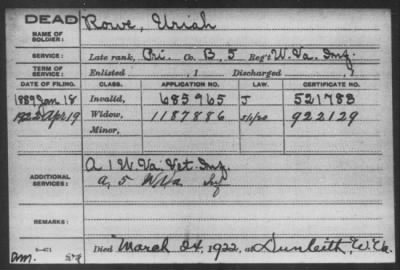 DEAD Rowe, Uriah
NAME OF SOLDIER:
SERVICE: Late rank, Pri. Co. B, 5 Reg't W. Va. Inf.
TERM OF SERVICE: Enlisted , 1 Discharged , 1
DATE OF FILING. CLASS. APPLICATION NO. LAW. CERTIFICATE NO.
1889 Jan 18 Invalid, 685965 J 521783
1922 Apr 19 Widow, 1187886 5/1/20 922129
Minor,
ADDITIONAL SERVICES: A 1 W. Va. Vet. Inf.
A, 5 W Va Inf
REMARKS:
Died March 24, 1922, at Dunleith, W. Va.